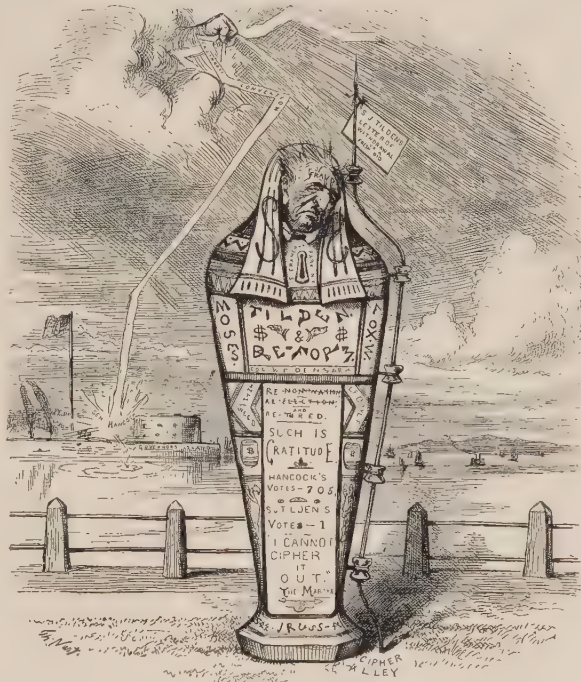 CONVENTION
S J TILDENS
LETTER OF
WITHDRAWAL
FRAUD
MOSES
TILDEN
$ & $
RE-FORM
RE-NOMINATION
RE-ELECTION
AND
RE-TIRED.
SUCH IS
GRATITUDE
HANCOCK'S
VOTES-705
S.J.TILDEN'S
VOTES-1
"I CANNOT
CIPHER
IT
OUT."
THE MARTYR
HANCOCK
GOVERNORS
Th. Nast
CIPHER
ALLEY